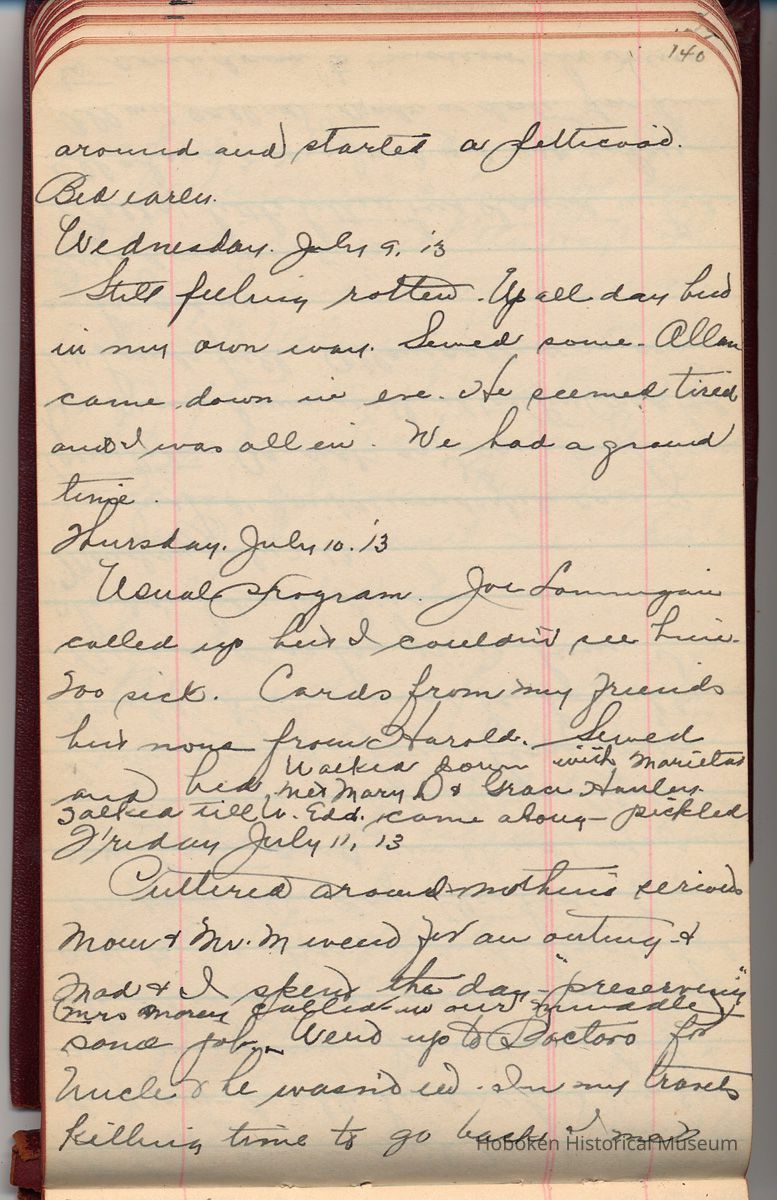 140
around and started a petticoat.
Bed early.
Wednesday. July 9. '13
Still feeling rotten. Up all day but
in my own way. Sewed some. Allan
came down in eve. He seemed tired
and I was all in. We had a grand
time.
Thursday. July 10. '13
Usual Program. Joe
called up but I couldn't see him.
Too sick. Cards from my friends
but none from Harold. Sewed
and bed. Walked down with Marietta
met Mary D & Grace Hanley.
Talked till W. Edd. came along - pickled
Friday July 11, 13
Puttered around nothing serious
Mom & Mr. M went for an outing &
Mad & I spent the day "preserving"
Mrs Morey called in our muddle
some job. Went up to Doctors for
Uncle & he wasn't in. In my travels
killing time to go back I met
Hoboken Historical Museum